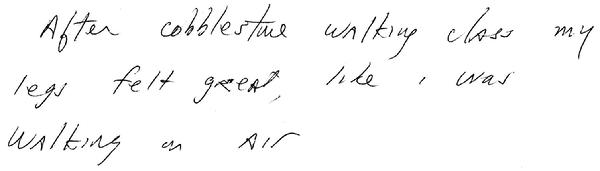 After cobblestone walking class my
legs felt great, like i was
walking on Air